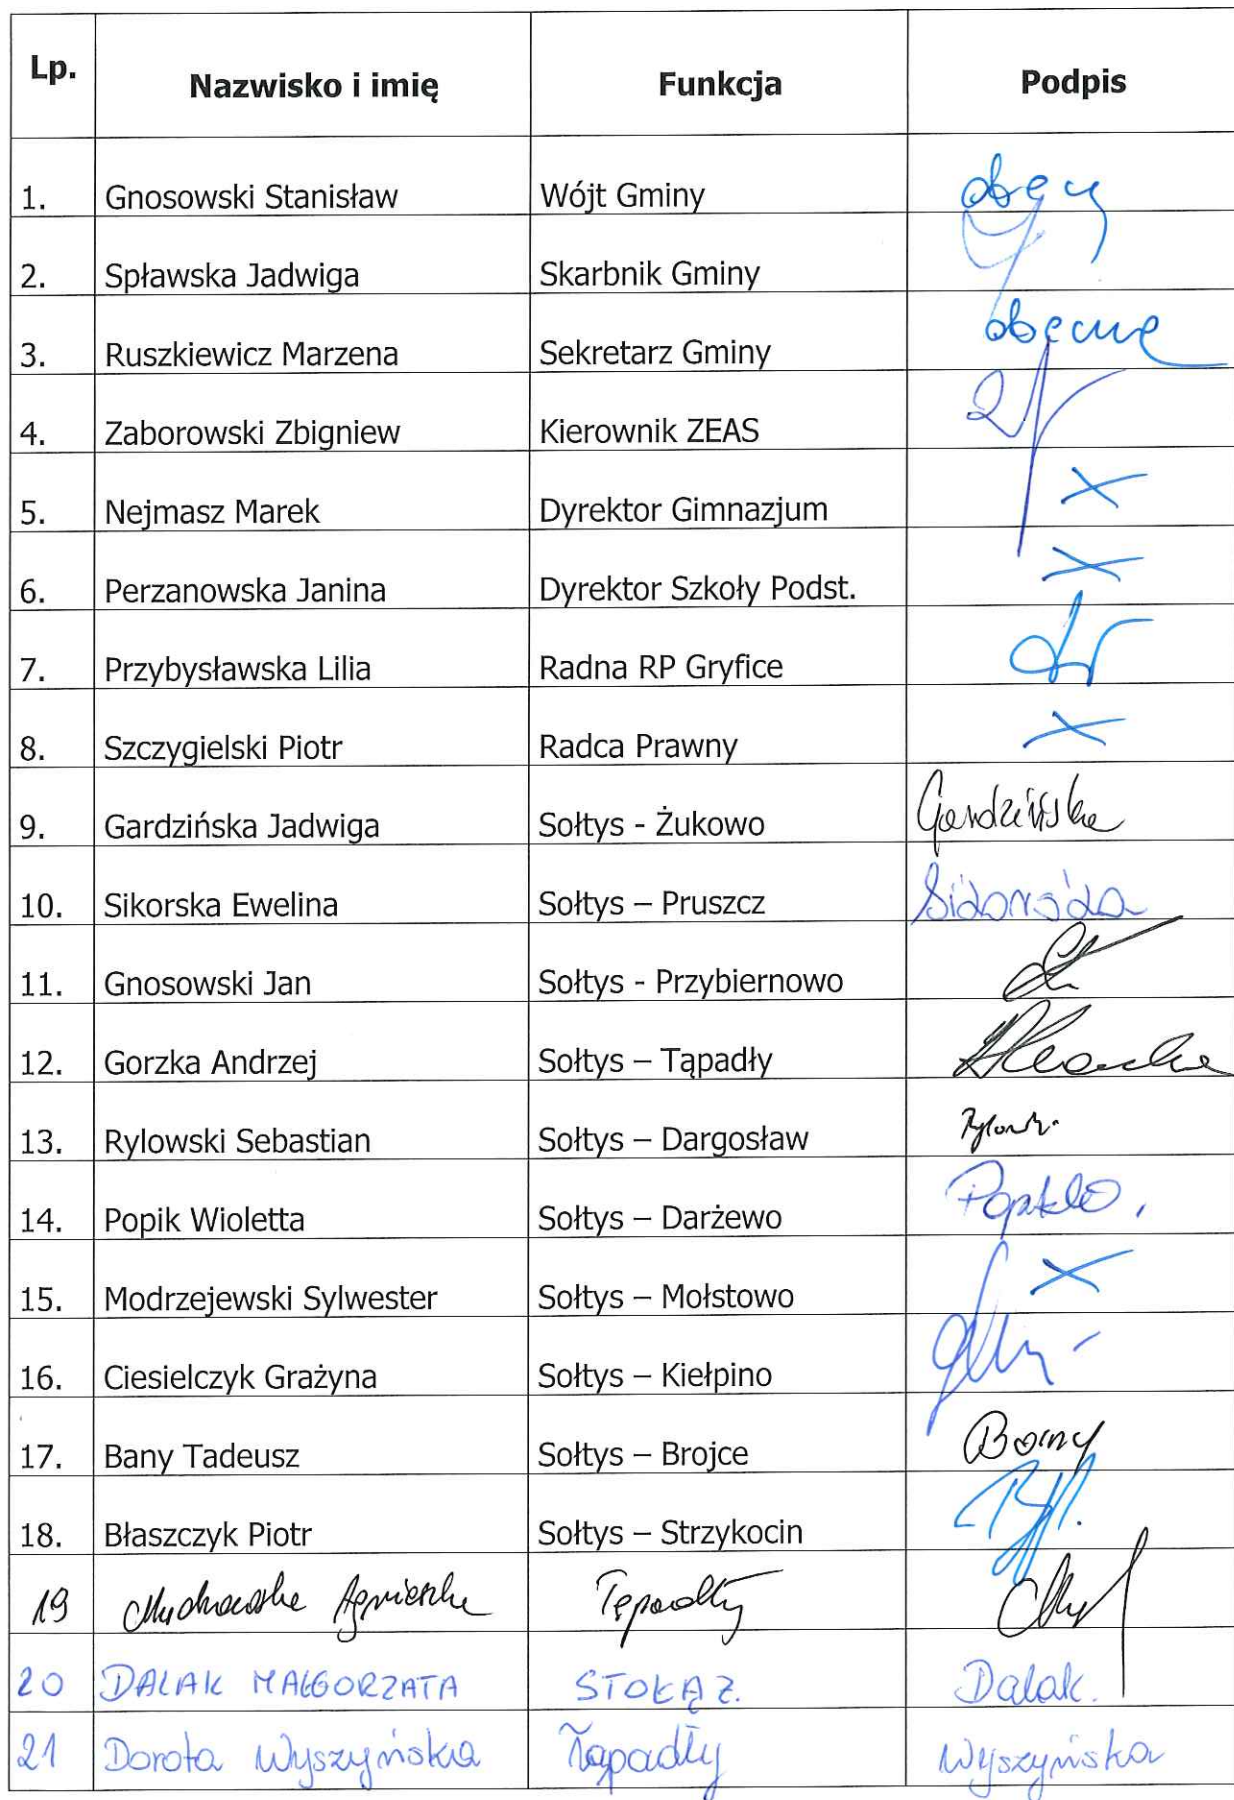 Lp. Nazwisko i imię Funkcja Podpis
1. Gnosowski Stanisław Wójt Gminy
2. Spławska Jadwiga Skarbnik Gminy
3. Ruszkiewicz Marzena Sekretarz Gminy
4. Zaborowski Zbigniew Kierownik ZEAS
5. Nejmasz Marek Dyrektor Gimnazjum
6. Perzanowska Janina Dyrektor Szkoły Podst.
7. Przybysławska Lilia Radna RP Gryfice
8. Szczygielski Piotr Radca Prawny
9. Gardzińska Jadwiga Sołtys - Żukowo Gardzińska
10. Sikorska Ewelina Sołtys – Pruszcz Sikorska
11. Gnosowski Jan Sołtys - Przybiernowo
12. Gorzka Andrzej Sołtys – Tąpadły
13. Rylowski Sebastian Sołtys – Dargosław
14. Popik Wioletta Sołtys – Darżewo
15. Modrzejewski Sylwester Sołtys – Mołstowo
16. Ciesielczyk Grażyna Sołtys – Kiełpino
17. Bany Tadeusz Sołtys – Brojce Bany
18. Błaszczyk Piotr Sołtys – Strzykocin
19 Agnieszka Tąpadły
20 DALAK MAŁGORZATA STOŁĄŻ. Dalak.
21 Dorota Wyszyńska Tąpadły Wyszyńska